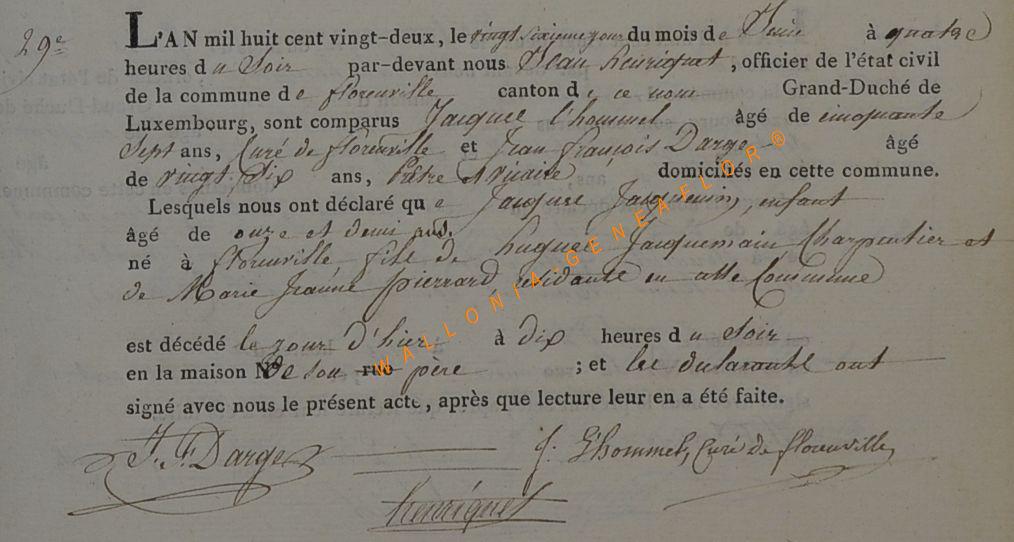 29e
L'AN mil huit cent vingt-deux, le vingt sixieme jour du mois de Juin à quatre
heures du Soir par-devant nous Jean henriquet, officier de l'état civil
de la commune de florenville canton de ce nom Grand-Duché de
Luxembourg, sont comparus Jacques l'hommel âgé de cinquante
Sept ans, Curé de florenville et Jean françois Darge âgé
de vingt Six ans, Prêtre et vicaire domiciliés en cette commune.
Lesquels nous ont déclaré que Jacques Jacquemin, enfant
âgé de onze et demi ans.
né à florenville fils de hugues Jacquemain Charpentier et
de Marie Jeanne pierrard, residante en cette Commune
est décédé le jour d'hier à dix heures du Soir
en la maison N° de son rue pere ; et les declarants ont
signé avec nous le présent acte, après que lecture leur en a été faite.
J. F. Darge J. L'hommel, Curé de florenville
henriquet
WALLONIA-GENEAFLOR®